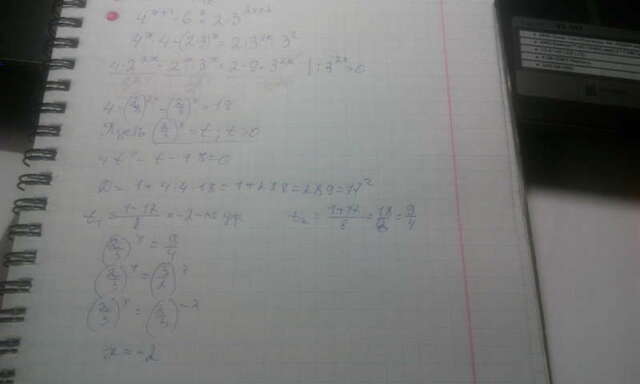 4^{x+1} - 6^x = 2·3^{2x+2}
4^x·4 - (2·3)^x = 2·3^{2x}·3^2
4·2^{2x} - 2^x·3^x = 2·9·3^{2x} | : 3^{2x} ≠ 0
4·(2/3)^{2x} - (2/3)^x = 18
Пусть (2/3)^x = t, t > 0
4t^2 - t - 18 = 0
D = 1 + 4·4·18 = 1 + 288 = 289 = 17^2
t_1 = (1-17)/8 = -2 - не уд. t_2 = (1+17)/8 = 18/8 = 9/4
(2/3)^x = 9/4
(2/3)^x = (3/2)^2
(2/3)^x = (2/3)^{-2}
x = -2